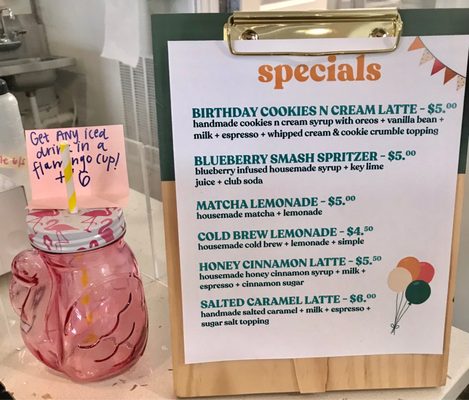 Get ANY iced
drink in a
flamingo cup!
+ 6
specials
BIRTHDAY COOKIES N CREAM LATTE - $5.00
handmade cookies n cream syrup with oreos + vanilla bean +
milk + espresso + whipped cream & cookie crumble topping
BLUEBERRY SMASH SPRITZER - $5.00
blueberry infused homemade syrup + key lime
juice + club soda
MATCHA LEMONADE - $5.00
housemade matcha + lemonade
COLD BREW LEMONADE - $4.50
housemade cold brew + lemonade + simple
HONEY CINNAMON LATTE - $5.50
housemade honey cinnamon syrup + milk +
espresso + cinnamon sugar
SALTED CARAMEL LATTE - $6.00
handmade salted caramel + milk + espresso +
sugar salt topping